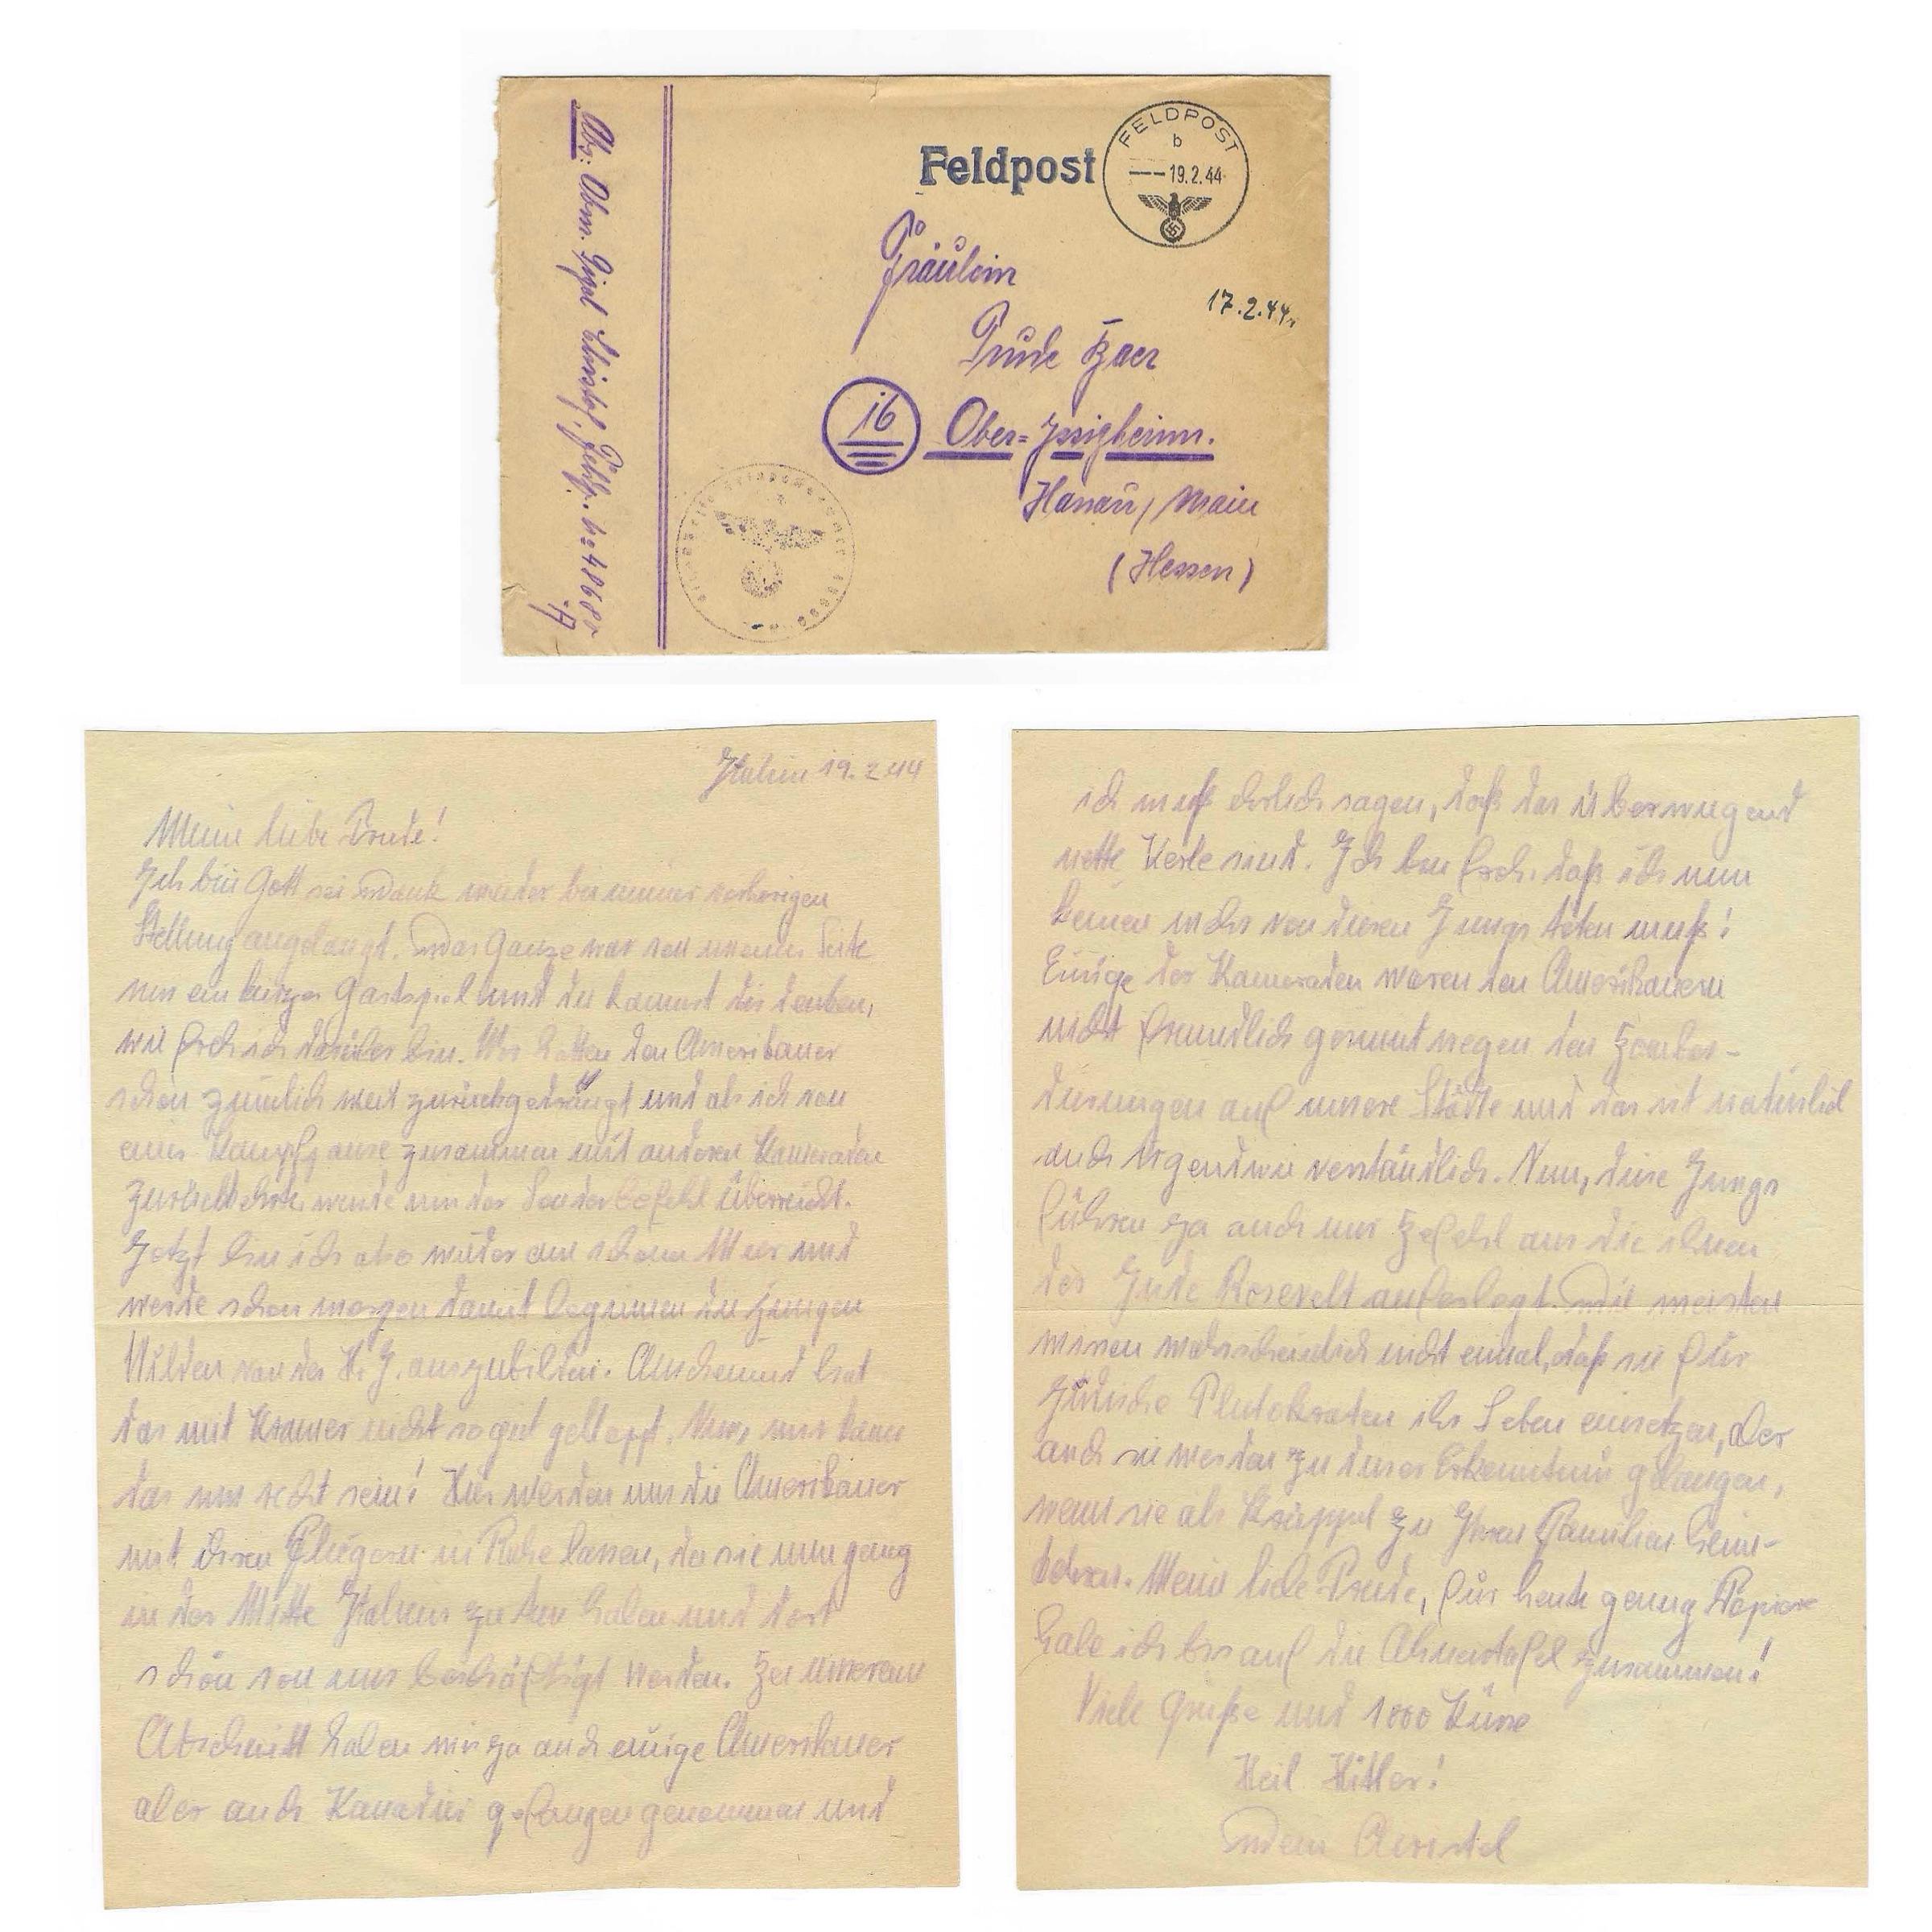 Feldpost
FELDPOST
b
19.2.44
17.2.44.
Fräulein
Trude Baer
16
Ober-Issigheim.
Hanau/Main
(Hessen)
Abs: Obm. Christof, Feldp. Nr 48686
A
Italien 19.2.44
Meine liebe Trude!
Ich bin Gott sei Dank wieder bei meiner vorherigen
Stellung angelangt. Das Ganze war von unserer Seite
nur ein kurzes Gastspiel und du kannst dir denken,
wie froh ich darüber bin. Wir hatten den Amerikaner
schon ziemlich weit zurückgedrängt und als ich von
einer Kampfpause zusammen mit anderen Kameraden
zurückkehrte, wurde uns der Sonderbefehl überreicht.
Jetzt bin ich also wieder am schönen Meer und
werde schon morgen damit beginnen die jungen
Wilden von der H.J. auszubilden. Anscheinend hat
das mit Kramer nicht so gut geklappt. Nun, mir kann
das nur recht sein! Hier werden uns die Amerikaner
mit ihren Fliegern in Ruhe lassen, da sie nun genug
in der Mitte Italiens zu tun haben und dort
schön von uns beschäftigt werden. Bei unserem
Abschnitt haben wir ja auch einige Amerikaner
aber auch Kanadier gefangen genommen und
ich muß ehrlich sagen, daß das überwiegend
nette Kerle sind. Ich bin froh, daß ich nun
keinen mehr von diesen Jungs töten muß!
Einige der Kameraden waren den Amerikanern
nicht freundlich gesinnt wegen den Bombar-
dierungen auf unsere Städte und das ist natürlich
auch irgendwie verständlich. Nun, diese Jungs
führen ja auch nur Befehl aus die ihnen
der Jude Rosevelt auferlegt. Die meisten
wissen wahrscheinlich nicht einmal, daß sie für
jüdische Plutokraten ihr Leben einsetzen, aber
auch sie werden zu dieser Erkenntnis gelangen,
wenn sie als Krüppel zu Ihren Familien heim-
kehren. Meine liebe Trude, für heute genug Papier
habe ich bis auf die Ahnentafel zusammen!
Viele Grüße und 1000 Küsse
Heil Hitler!
Dein Christel